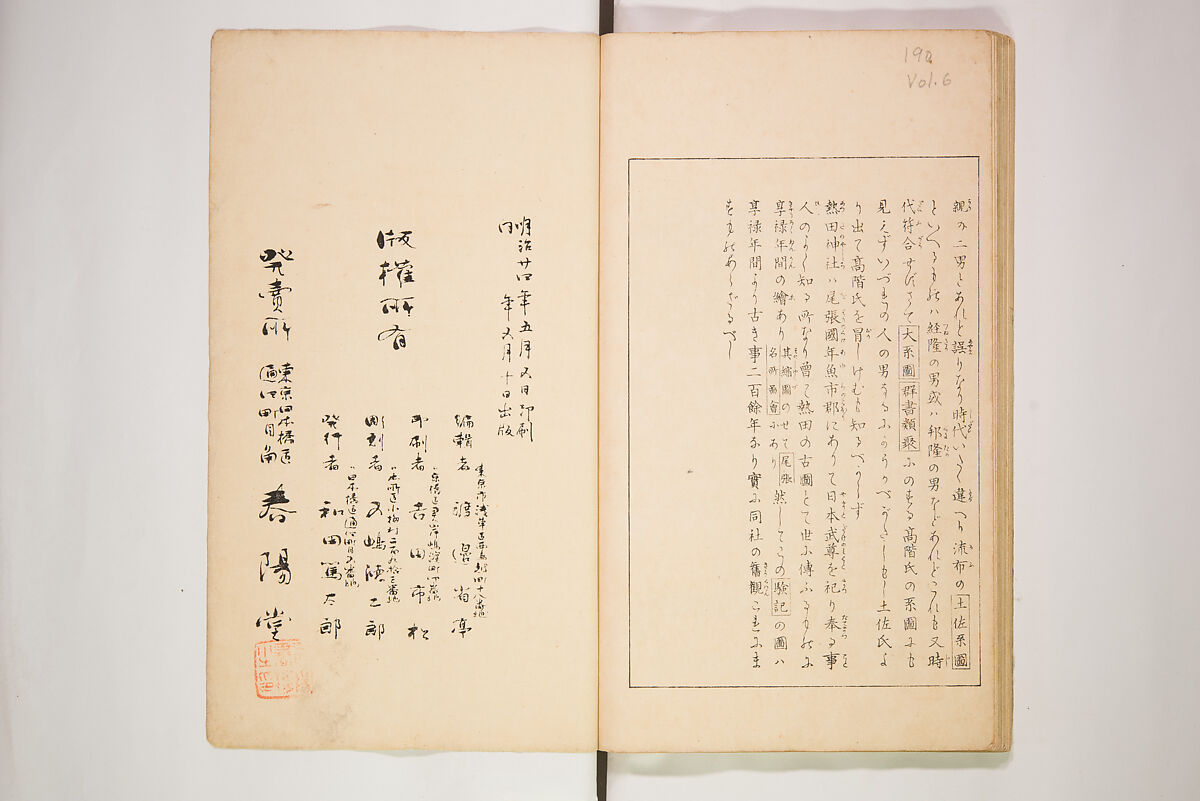 190
Vol.6
親の二男とあれと誤りなり時代いたく違へり流布の土佐系圖
といへるものハ経隆の男或ハ邦隆の男などあれどこれも又時
代符合せずさて大系圖群書類聚ふのする高階氏の系圖にも
見えずいづれの人の男なるにかうかべがたしもし土佐氏よ
り出て高階氏を冒しけむも知るべからず
熱田神社ハ尾張國年魚市郡にありて日本武尊を祀り奉る事
人のよく知る所なり曽て熱田の古圖とて世に傳ふるものに
享禄年間の繪あり其縮圖のせて尾張名所圖會にあり然してこの験記の圖ハ
享禄年間より古き事二百餘年なり實に同社の舊觀これにま
すものあらざるべし
明治廿四年五月五日印刷
同 年五月十日出版
版權所有
東京市浅草區西鳥越町十八番地
編輯者 渡邉省亭
印刷者 吉田市松
彫刻者 五嶋徳二郎
日本橋區通四町目五番地
発行者 和田篤太郎
発賣所 東京日本橋區通四町目角 春陽堂